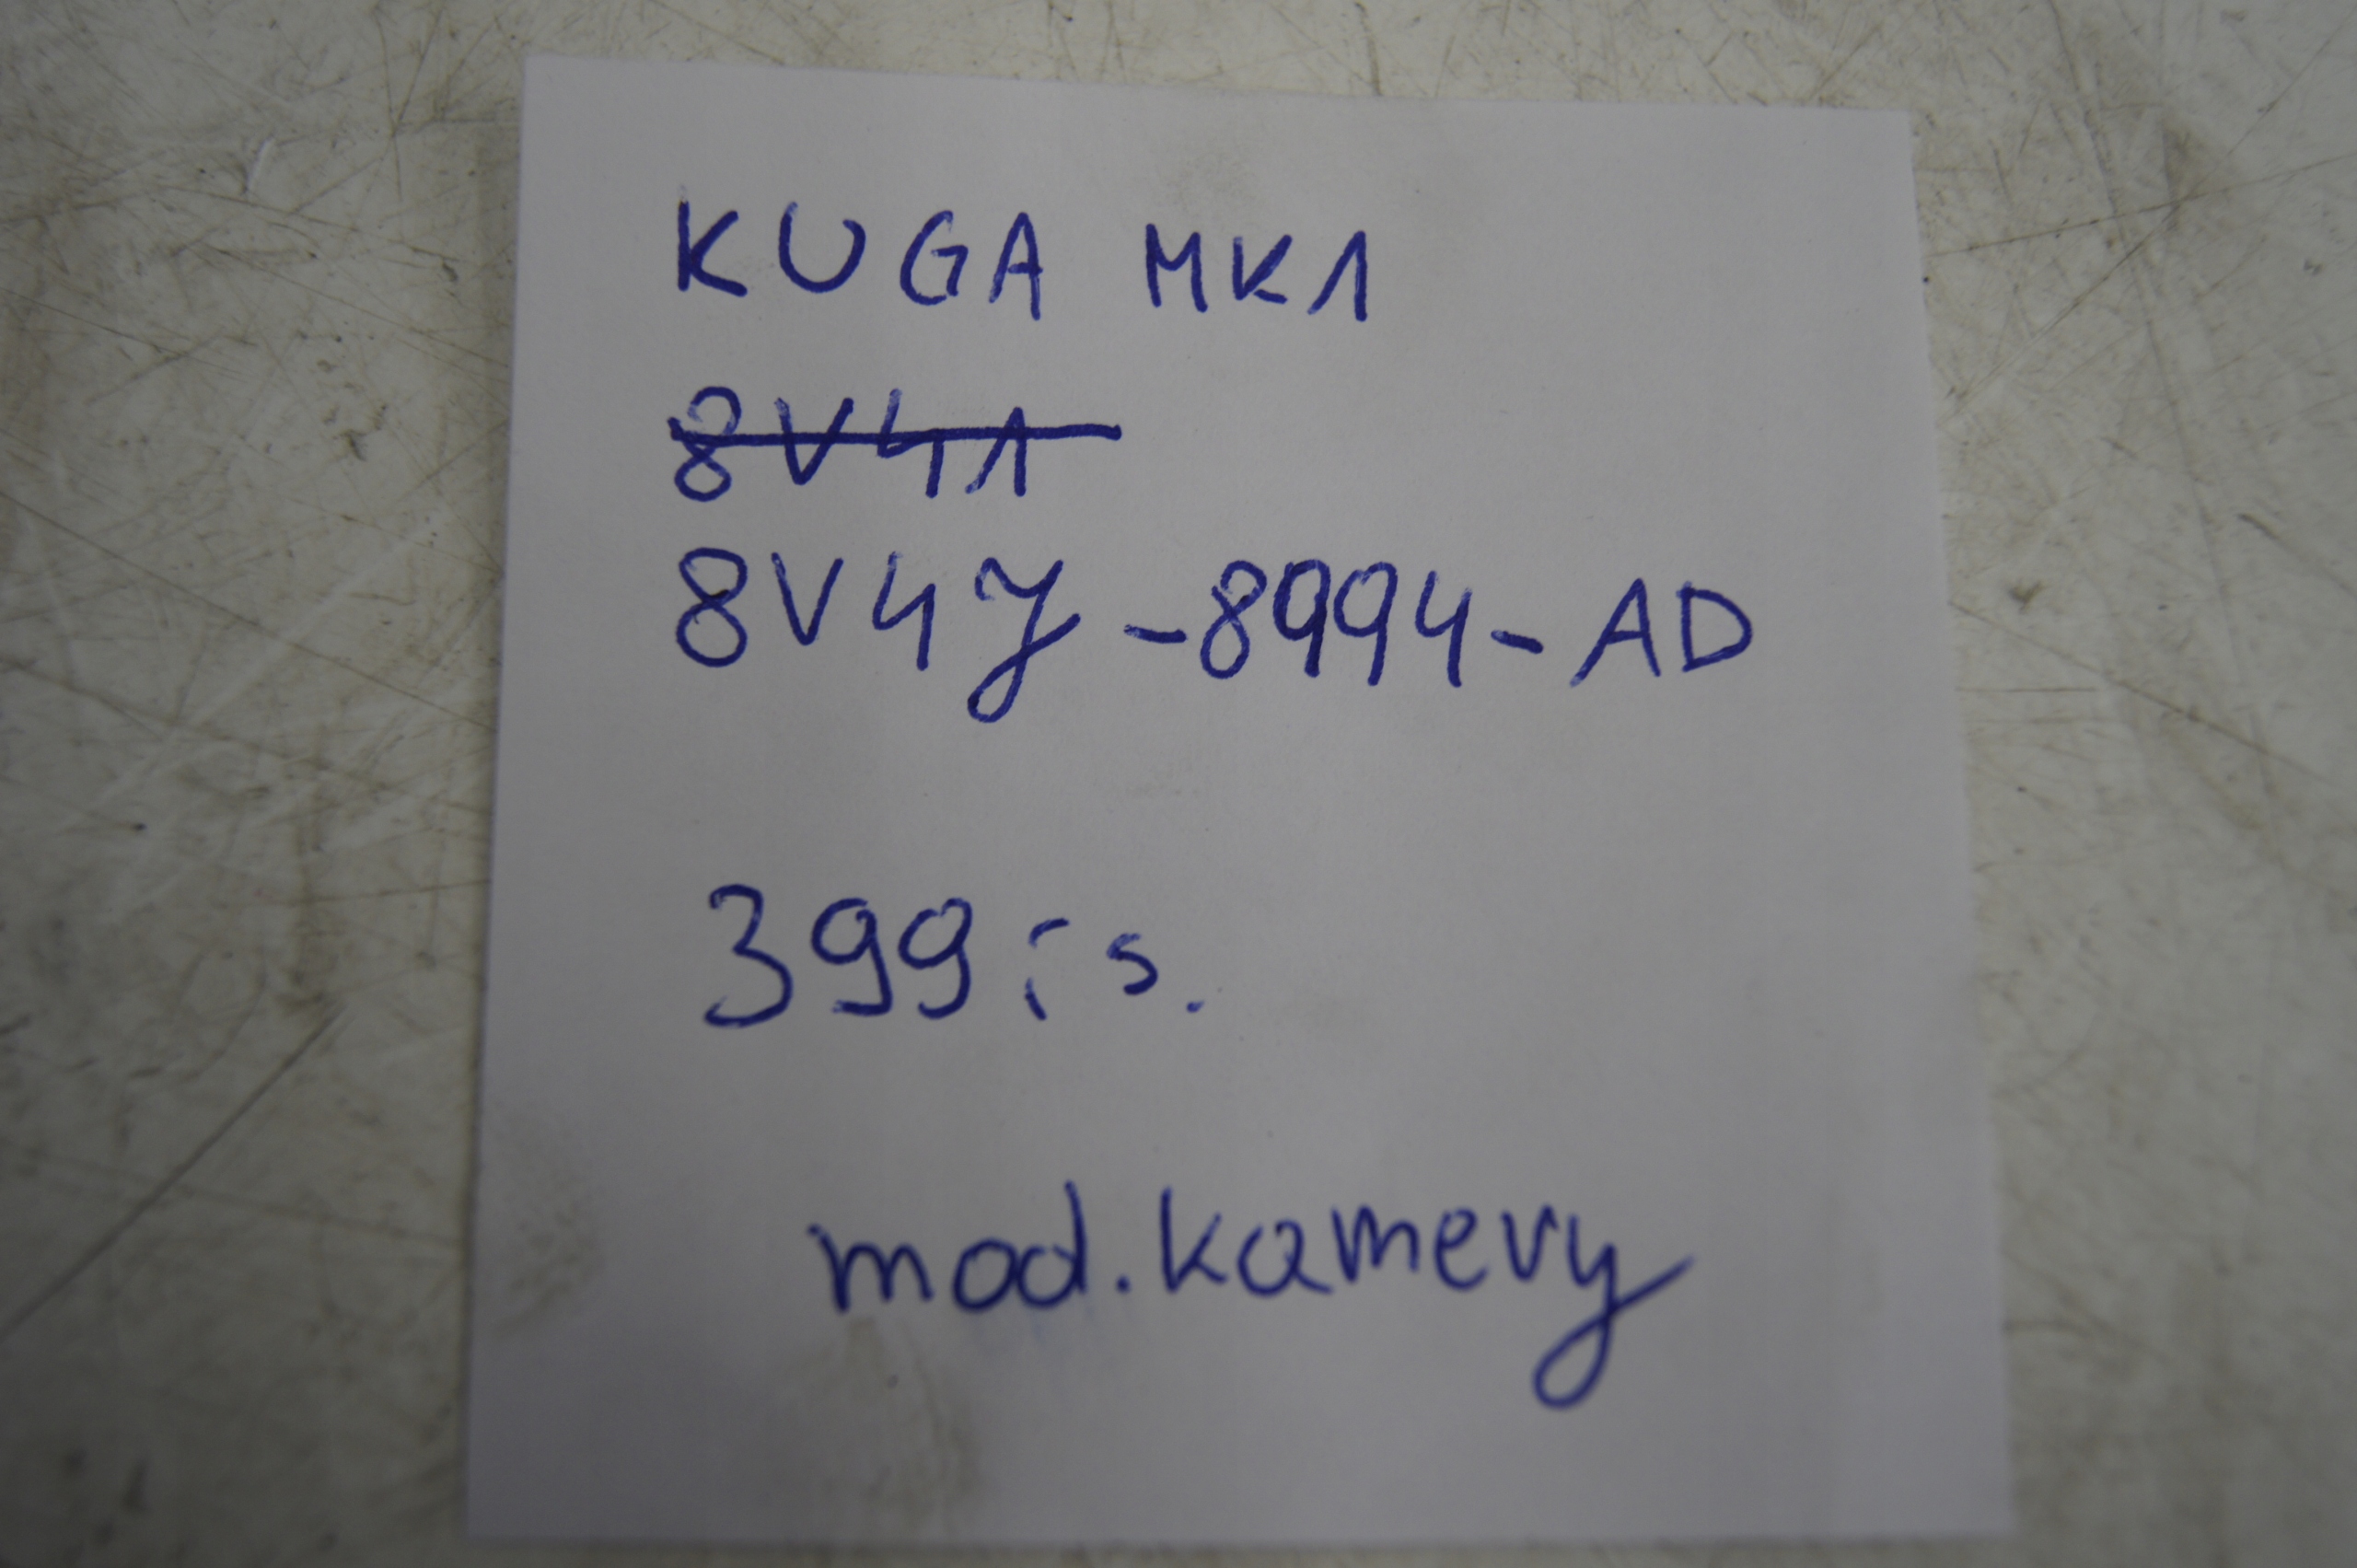 KUGA MK1
8V41
8V4J-8994-AD
399;- s.
mod. kamery